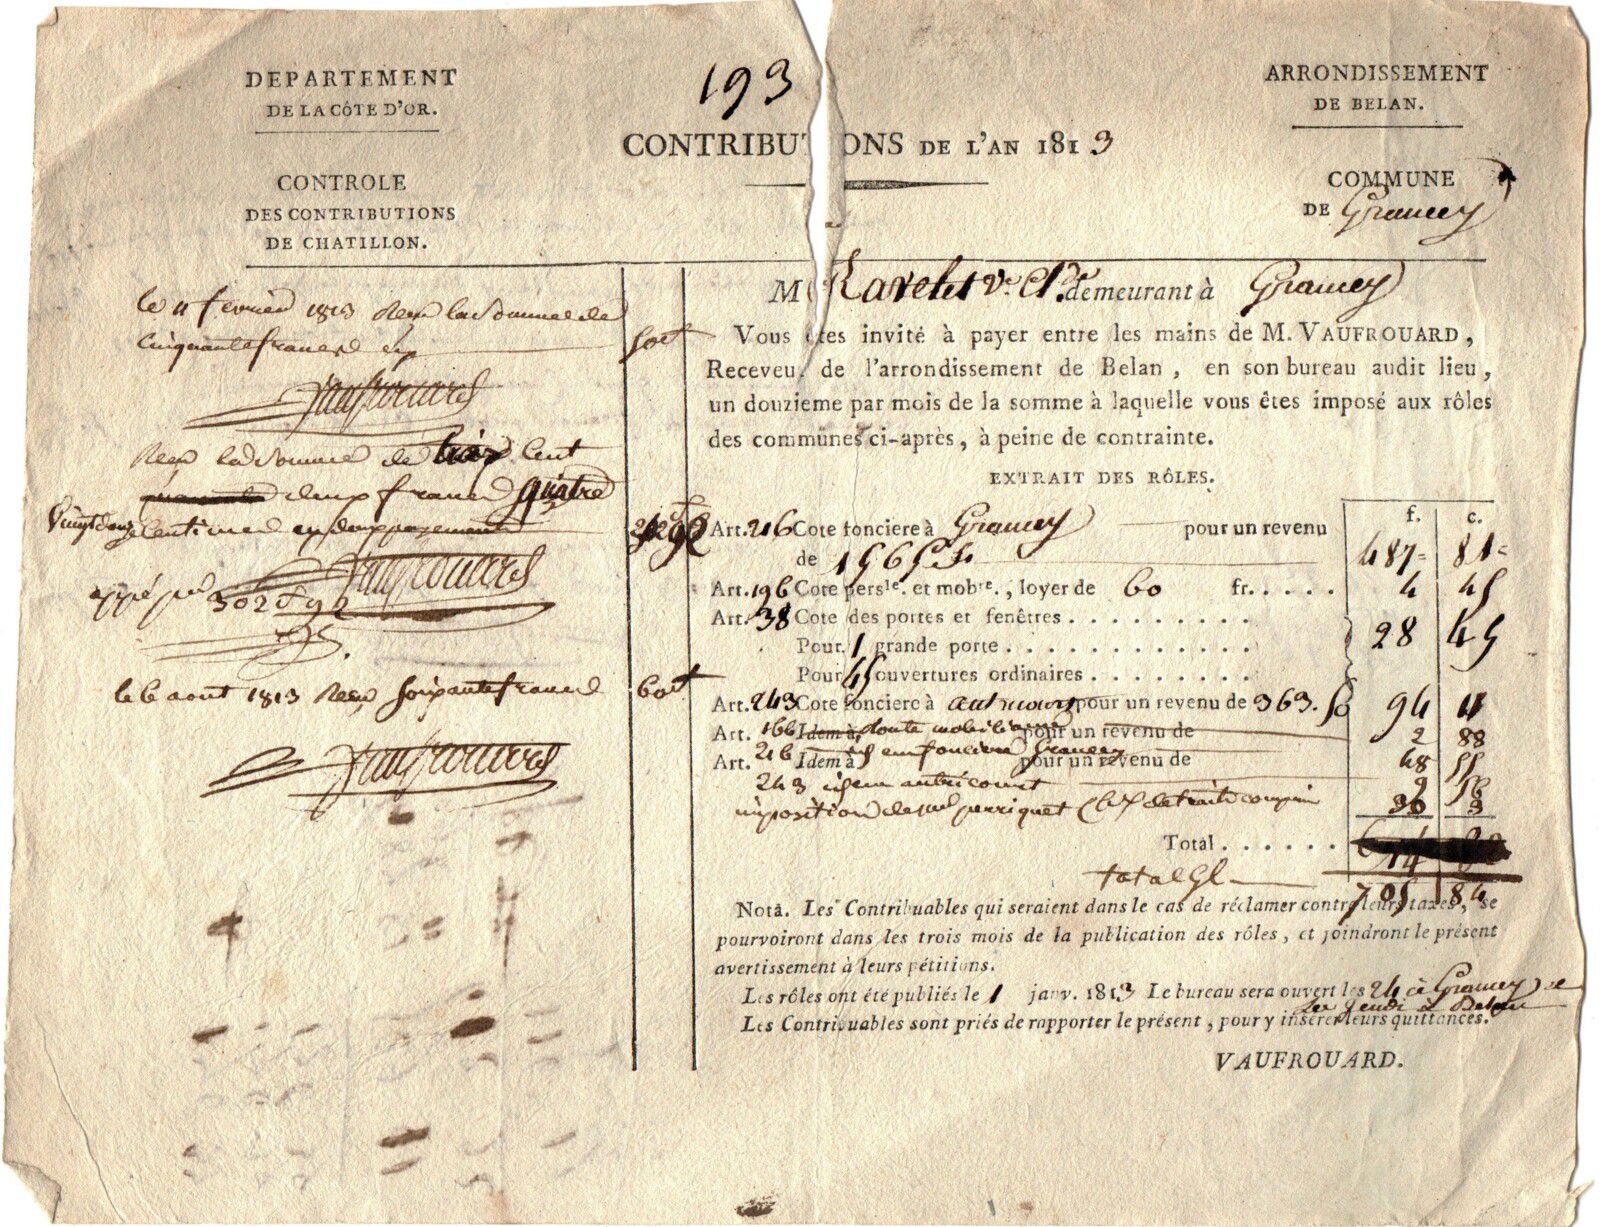 DEPARTEMENT
DE LA CÔTE D'OR.
193
ARRONDISSEMENT
DE BELAN.
CONTRIBUTIONS DE L'AN 1813
CONTROLE
DES CONTRIBUTIONS
DE CHATILLON.
COMMUNE
DE Grancey
le 11 fevrier 1813 Reçu la somme de
Cinquante francs cy 50 f
Vaufrouard
Reçu la somme de trois Cent
deux francs quatre
Vingt douze Centimes en deux payements 302 92
Vaufrouard
302 f 92
le 6 aout 1813 Reçu soixante francs 60 f
Vaufrouard
M Ravelet Ve demeurant à Grancey
Vous êtes invité à payer entre les mains de M. VAUFROUARD,
Receveur de l'arrondissement de Belan, en son bureau audit lieu,
un douzieme par mois de la somme à laquelle vous êtes imposé aux rôles
des communes ci-après, à peine de contrainte.
EXTRAIT DES RÔLES.
f. c.
Art. 216 Cote fonciere à Grancey pour un revenu
de 1565 487 = 81 =
Art. 196 Cote persle. et mobre., loyer de 60 fr..... 4 45
Art. 38 Cote des portes et fenêtres.........
Pour 1 grande porte............ 28 45
Pour 45 ouvertures ordinaires.........
Art. 243 Cote fonciere à autricourt pour un revenu de 363. 50 94 11
Art. 166 Idem à mobiliaire pour un revenu de 2 88
Art. 216 Idem à fonciere Grancey pour un revenu de 48 55
243 idem autricourt 9 56
imposition de perriquet 30 3
Total......
total Gl 705 84
Nota. Les Contribuables qui seraient dans le cas de réclamer contre leurs taxes, se
pourvoiront dans les trois mois de la publication des rôles, et joindront le présent
avertissement à leurs pétitions.
Les rôles ont été publiés le 1 janv. 1813 Le bureau sera ouvert les 24 à Grancey et
les jeudi à Belan
Les Contribuables sont priés de rapporter le présent, pour y insérer leurs quittances.
VAUFROUARD.